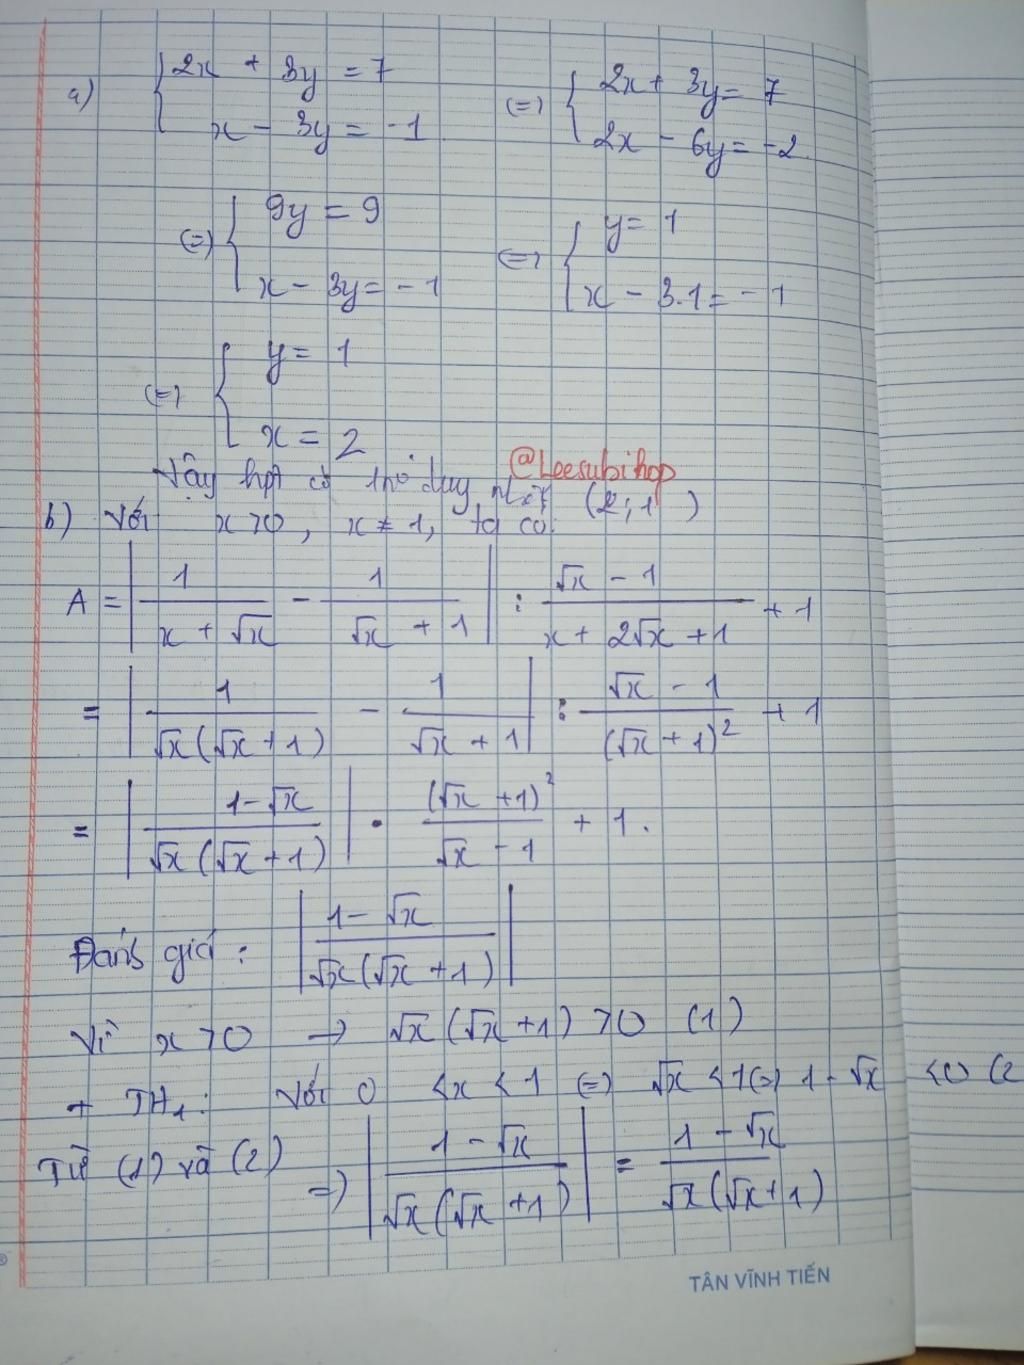 a) { 2x + 3y = 7 (=) { 2x + 3y = 7
x - 3y = -1 2x - 6y = -2
(=) { 9y = 9 (=) { y = 1
x - 3y = -1 x - 3.1 = -1
(=) { y = 1
x = 2
@Leesubihop
Vậy hpt có duy (2; 1)
b) Với x > 0, x ≠ 1, ta có:
A = | 1/(x + √x) - 1/(√x + 1) | : (√x - 1)/(x + 2√x + 1) + 1
= | 1/(√x(√x + 1)) - 1/(√x + 1) | : (√x - 1)/(√x + 1)² + 1
= | (1 - √x)/(√x(√x + 1)) | . (√x + 1)²/(√x - 1) + 1.
Đánh giá: | (1 - √x)/(√x(√x + 1)) |
Vì x > 0 → √x(√x + 1) > 0 (1)
+ TH1: Với 0 < x < 1 (=) √x < 1 (=) 1 - √x < 0 (2
Từ (1) và (2) =) | (1 - √x)/(√x(√x + 1)) | = (1 - √x)/(√x(√x + 1))
TÂN VĨNH TIẾN